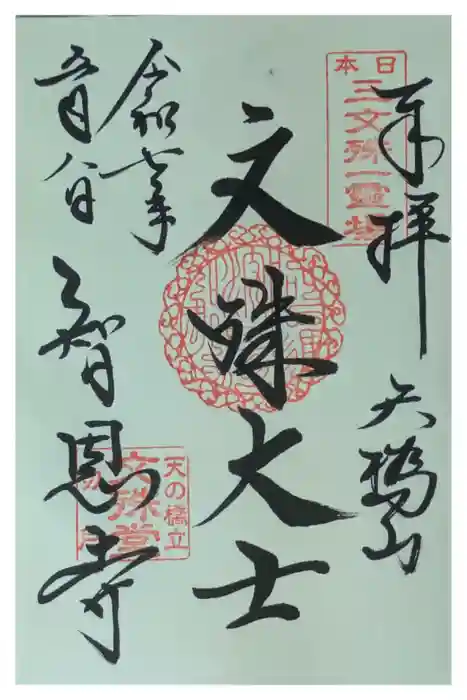 奉拝
天橋山
日本
三文殊一靈場
文殊大士
令和七年
五月八日
智恩寺
天の橋立
文殊堂